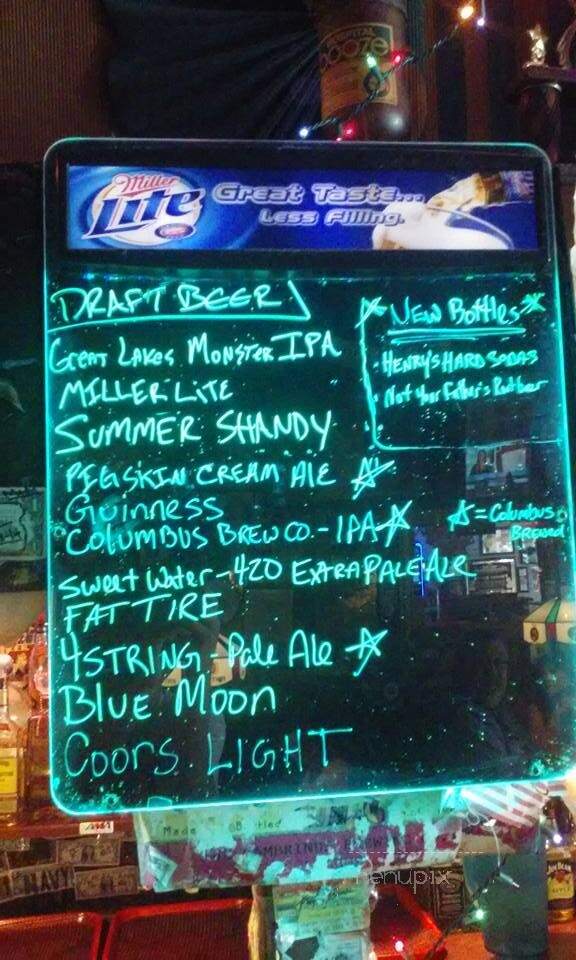 Miller
Lite
Great Taste...
Less Filling.
DRAFT BEER
GREAT LAKES MONSTER IPA
MILLER LITE
SUMMER SHANDY
PIGSKIN CREAM ALE
GUINNESS
COLUMBUS BREW CO. - IPA
SWEET WATER - 420 EXTRA PALE ALE
FAT TIRE
4 STRING - Pale Ale
BLUE MOON
COORS LIGHT
NEW Bottles
- HENRY'S HARD SODAS
Not Your Father's
= Columbus
BREWED
Made
NAVY
JIM BEAM
menupix